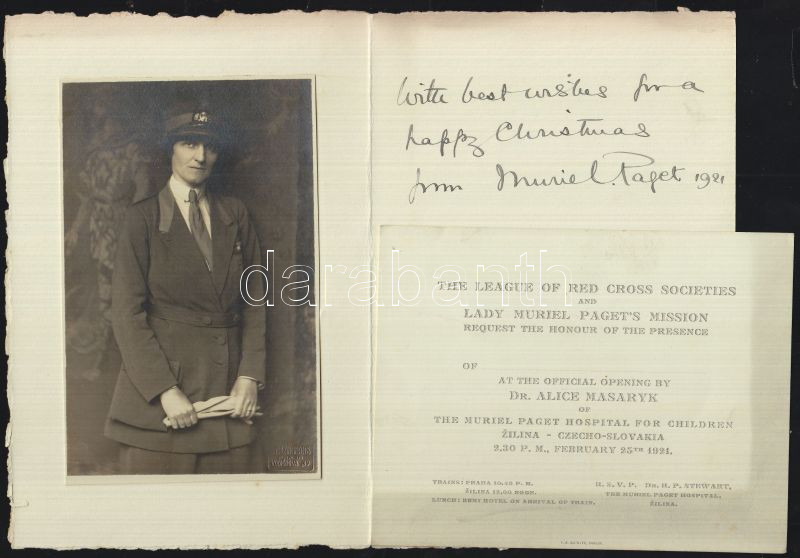 With best wishes for a
happy Christmas
from Muriel Paget 1921
darabanth
THE LEAGUE OF RED CROSS SOCIETIES
AND
LADY MURIEL PAGET'S MISSION
REQUEST THE HONOUR OF THE PRESENCE
OF
AT THE OFFICIAL OPENING BY
DR. ALICE MASARYK
OF
THE MURIEL PAGET HOSPITAL FOR CHILDREN
ŽILINA - CZECHO-SLOVAKIA
2.30 P. M., FEBRUARY 25TH 1921.
TRAINS: PRAHA 10.40 P. M.
ŽILINA 12.00 NOON.
LUNCH: REMI HOTEL ON ARRIVAL OF TRAIN.
R. S. V. P. DR. H. P. STEWART,
THE MURIEL PAGET HOSPITAL,
ŽILINA.